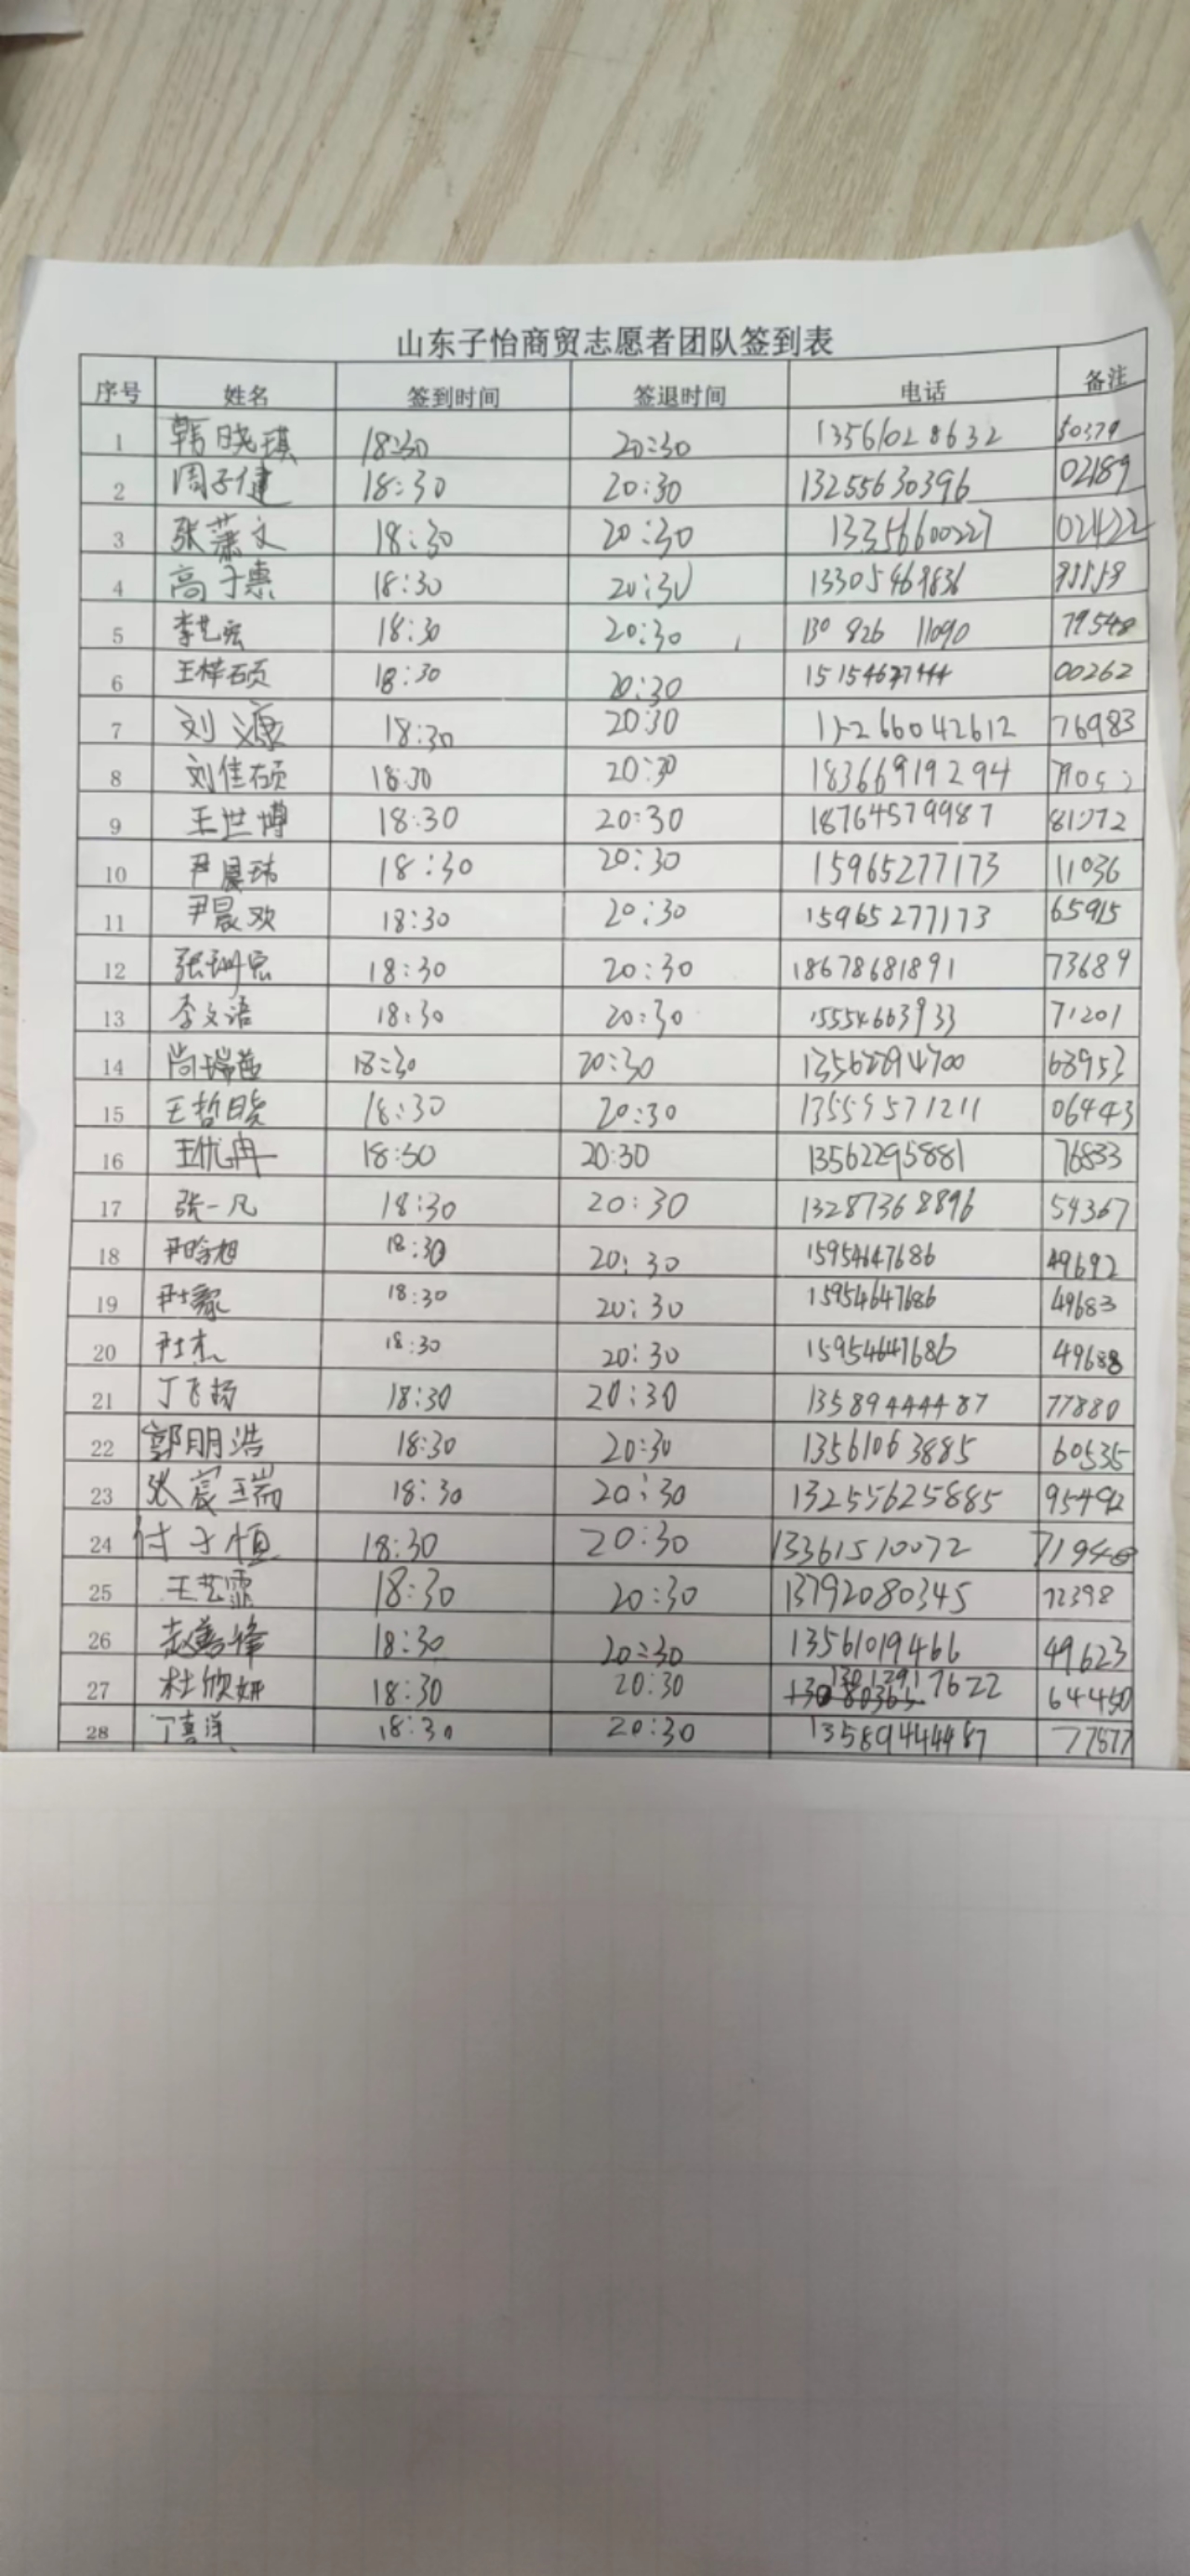 山东子怡商贸志愿者团队签到表
序号 姓名 签到时间 签退时间 电话 备注
1 韩晓琪 18:30 20:30 13561028632 50379
2 周子健 18:30 20:30 13255630396 02189
3 张萧文 18:30 20:30 13356600227 02422
4 高子惠 18:30 20:30 13305469836
5 李艺宏 18:30 20:30 130 826 11090 79548
6 王梓硕 18:30 20:30 00262
7 刘 18:30 20:30 76983
8 刘佳硕 18:30 20:30 18366919294
9 王世博 18:30 20:30 18764579987
10 尹晨玮 18:30 20:30 15965277173 11036
11 尹晨欢 18:30 20:30 15965277173 65915
12 18:30 20:30 18678681891 73689
13 李文语 18:30 20:30 15554663933 71201
14 18:30 20:30 63953
15 王哲晓 18:30 20:30 06443
16 王优冉 18:30 20:30 13562295881 76833
17 张一凡 18:30 20:30 13287368896 54367
18 18:30 20:30 15954647686 49692
19 18:30 20:30 15954647686 49683
20 尹士杰 18:30 20:30 15954647686 49688
21 丁飞扬 18:30 20:30 13589444487 77880
22 郭朋浩 18:30 20:30 13561063885 60535
23 张宸瑞 18:30 20:30 13255625885 95492
24 付子恒 18:30 20:30 13361510072 71948
25 王艺霏 18:30 20:30 13792080345 72398
26 18:30 20:30 13561019466 49623
27 杜欣妍 18:30 20:30 13012917622 64450
28 丁喜洋 18:30 20:30 13589444487 77877